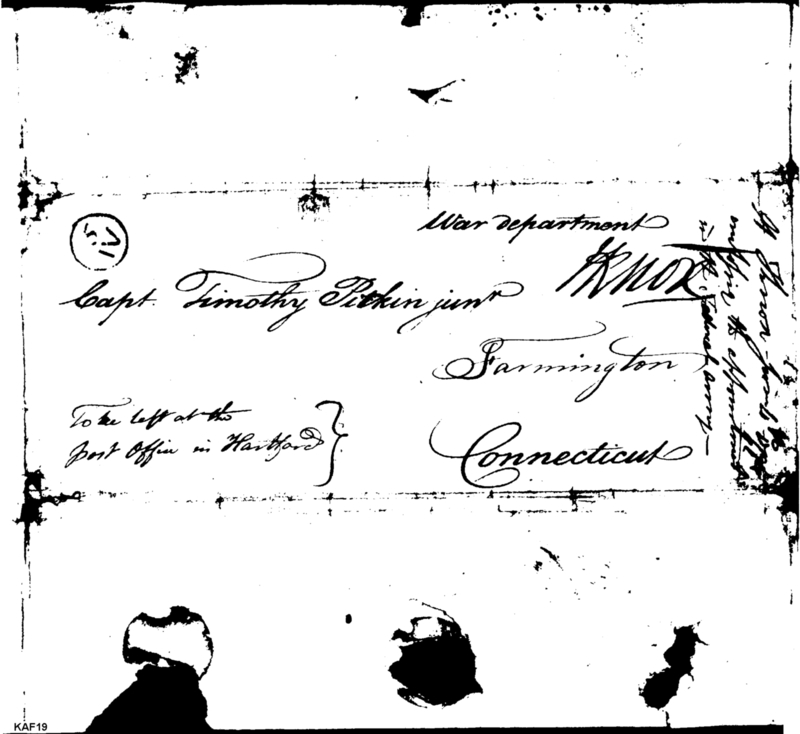 War department
HKnox
Capt. Timothy Pitkin junr
Farmington
To be left at the
post Office in Hartford
Connecticut
H Knox
KAF19